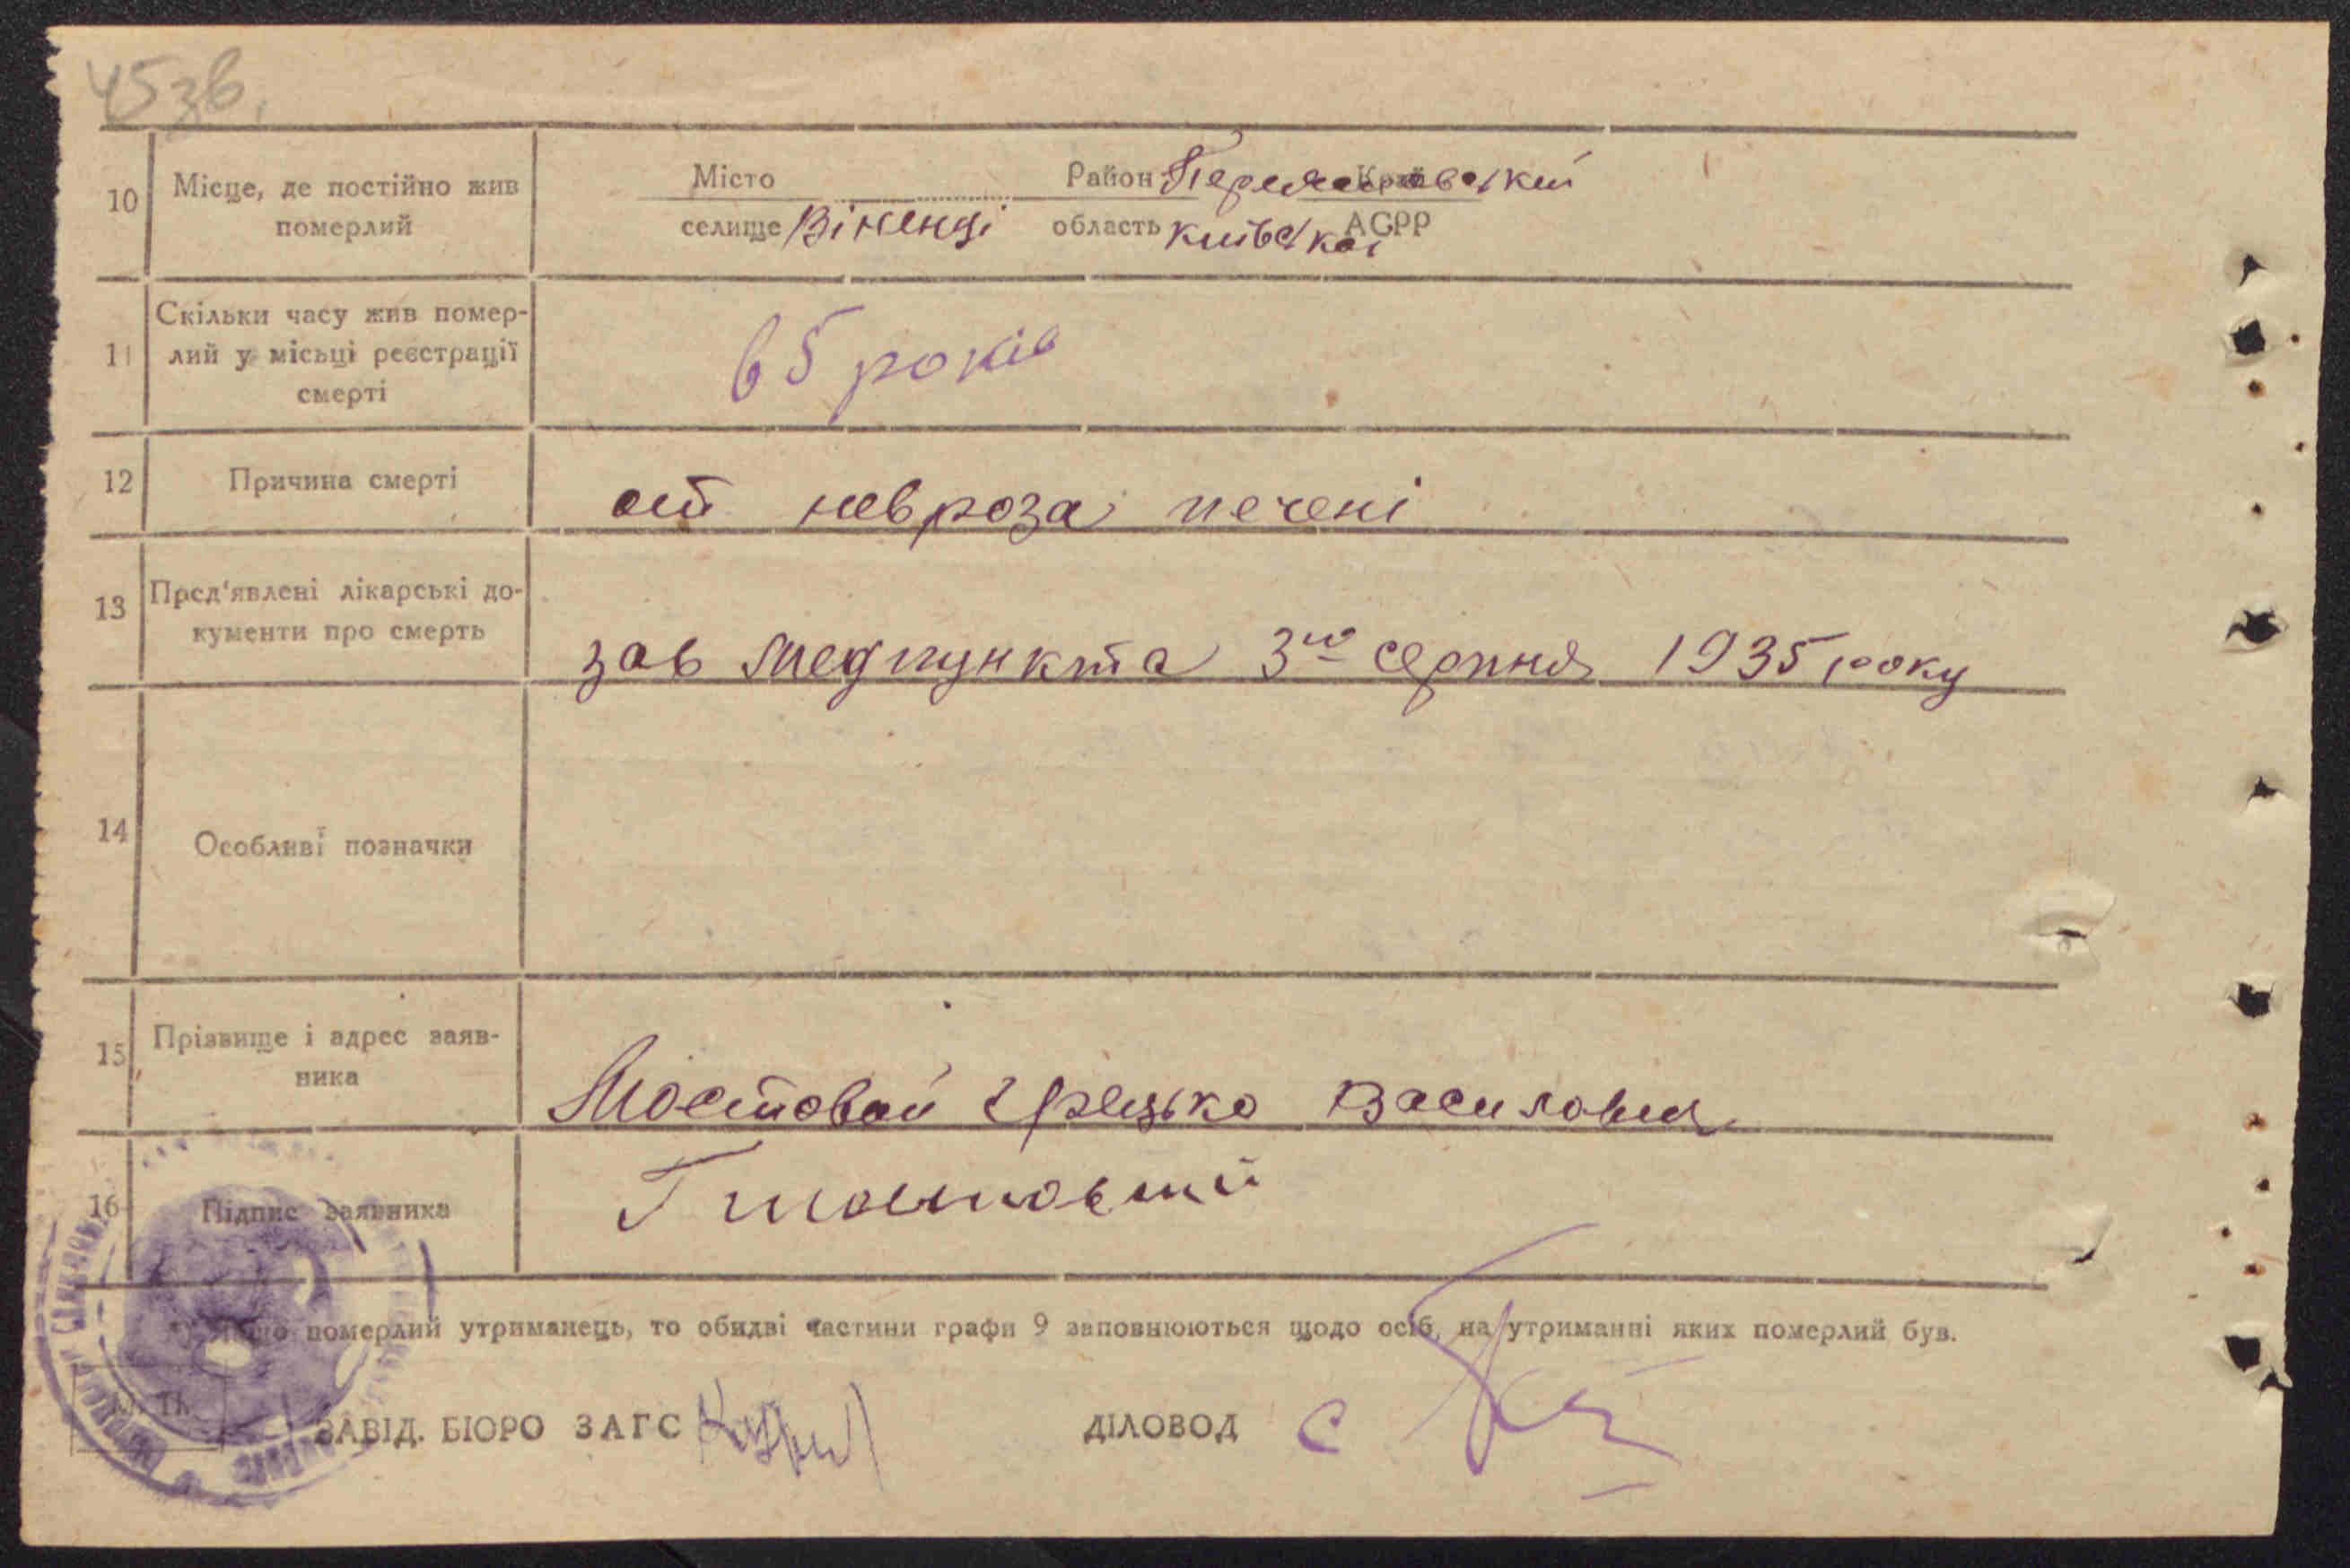 45зв.
10 Місце, де постійно жив померлий
Місто Район Переяславський Край
селище Віненці область Київської АСРР
11 Скільки часу жив помер-
лий у місьці реєстрації
смерті
65 років
12 Причина смерті
от невроза печені
13 Пред'явлені лікарські до-
кументи про смерть
зав медпункта 3го серпня 1935 року
14 Особливі позначки
15 Прізвище і адрес заяв-
ника
Мостовой Грецько Василович
16 Підпис заявника
Г Мостовий
*) Якщо померлий утриманець, то обидві частини графи 9 заповнюються щодо осіб, на утриманні яких померлий був.
М. П.
ЗАВІД. БЮРО ЗАГС
ДІЛОВОД